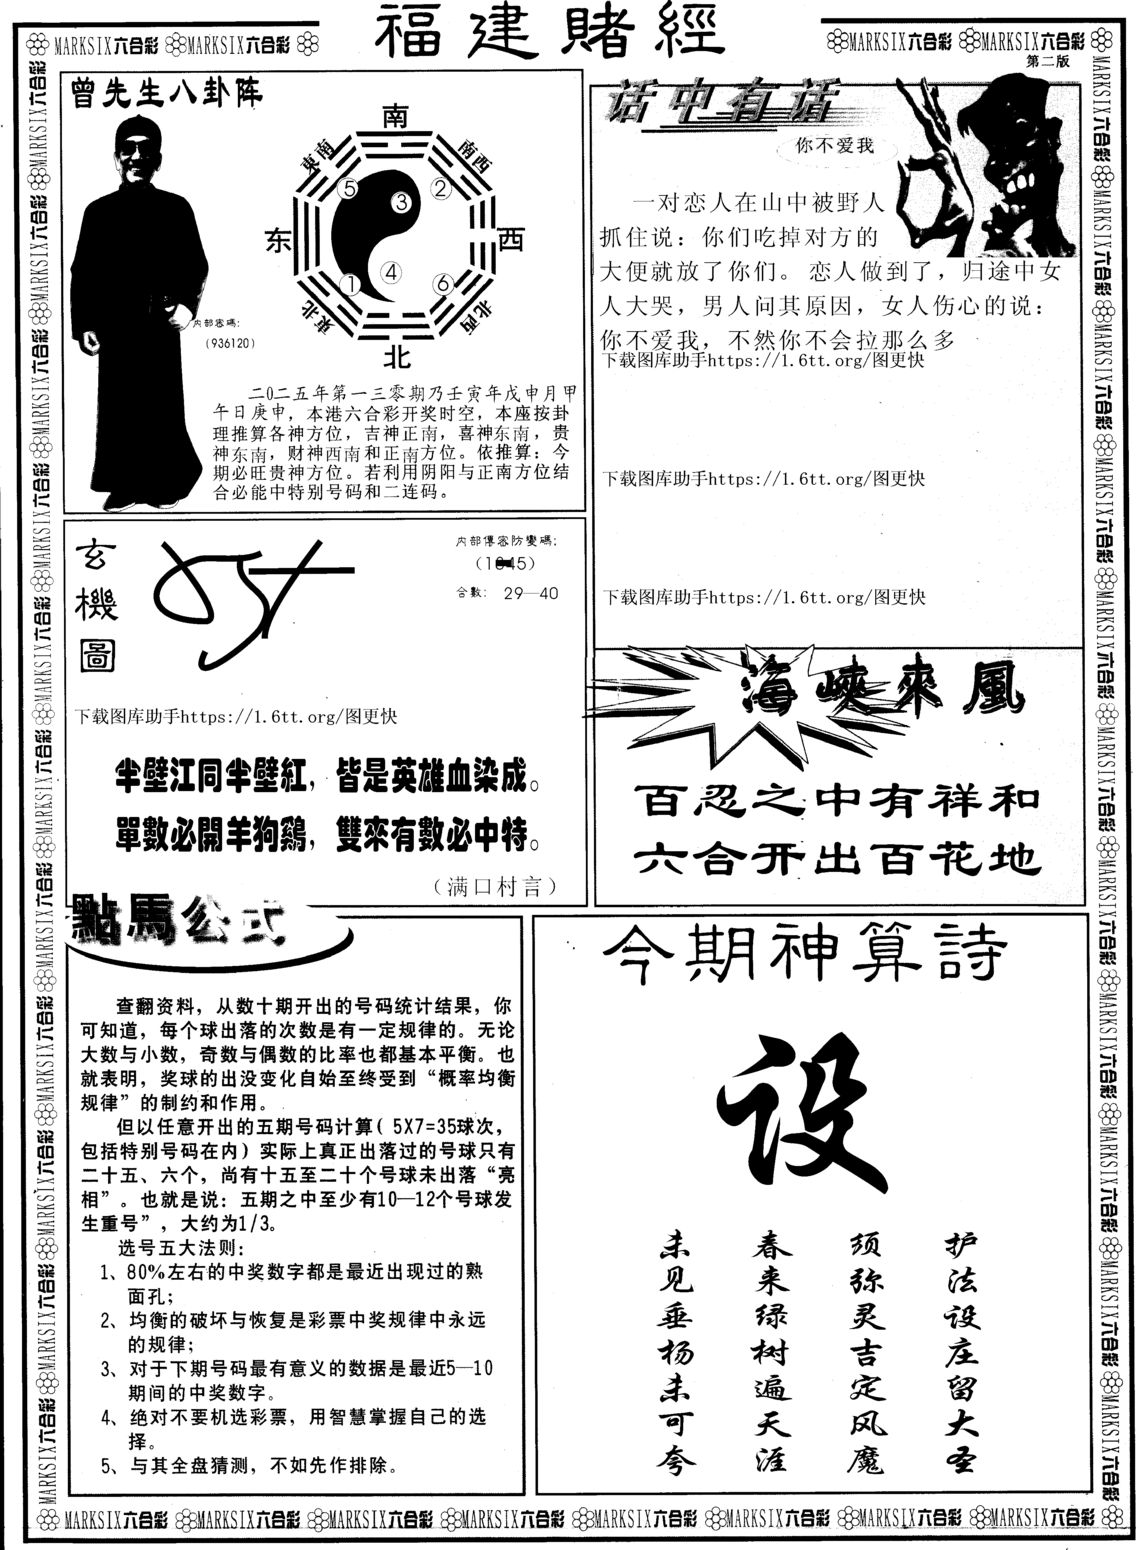 福建賭經
MARKSIX六合彩 MARKSIX六合彩
MARKSIX六合彩 MARKSIX六合彩
第二版
曾先生八卦阵
南
東南
南西
⑤
③
②
东
西
①
④
⑥
東北
北西
北
内部密碼:
(936120)
二0二五年第一三零期乃壬寅年戊申月甲
午日庚申，本港六合彩开奖时空，本座按卦
理推算各神方位，吉神正南，喜神东南，贵
神东南，财神西南和正南方位。依推算：今
期必旺贵神方位。若利用阴阳与正南方位结
合必能中特别号码和二连码。
话中有话
你不爱我
一对恋人在山中被野人
抓住说：你们吃掉对方的
大便就放了你们。恋人做到了，归途中女
人大哭，男人问其原因，女人伤心的说：
你不爱我，不然你不会拉那么多
下载图库助手https://1.6tt.org/图更快
下载图库助手https://1.6tt.org/图更快
下载图库助手https://1.6tt.org/图更快
玄機圖
内部傳密防變碼:
合數: 29—40
下载图库助手https://1.6tt.org/图更快
半壁江同半壁紅，皆是英雄血染成。
單數必開羊狗鷄，雙來有數必中特。
（满口村言）
海峽來風
百忍之中有祥和
六合开出百花地
點馬公式
查翻资料，从数十期开出的号码统计结果，你
可知道，每个球出落的次数是有一定规律的。无论
大数与小数，奇数与偶数的比率也都基本平衡。也
就表明，奖球的出没变化自始至终受到“概率均衡
规律”的制约和作用。
但以任意开出的五期号码计算( 5X7=35球次，
包括特别号码在内）实际上真正出落过的号球只有
二十五、六个，尚有十五至二十个号球未出落“亮
相”。也就是说：五期之中至少有10—12个号球发
生重号”，大约为1/3。
选号五大法则：
1、80%左右的中奖数字都是最近出现过的熟
面孔；
2、均衡的破坏与恢复是彩票中奖规律中永远
的规律；
3、对于下期号码最有意义的数据是最近5—10
期间的中奖数字。
4、绝对不要机选彩票，用智慧掌握自己的选
择。
5、与其全盘猜测，不如先作排除。
今期神算詩
设
护法设庄留大圣
须弥灵吉定风魔
春来绿树遍天涯
未见垂杨未可夸
MARKSIX六合彩 MARKSIX六合彩 MARKSIX六合彩 MARKSIX六合彩 MARKSIX六合彩 MARKSIX六合彩 MARKSIX六合彩 MARKSIX六合彩